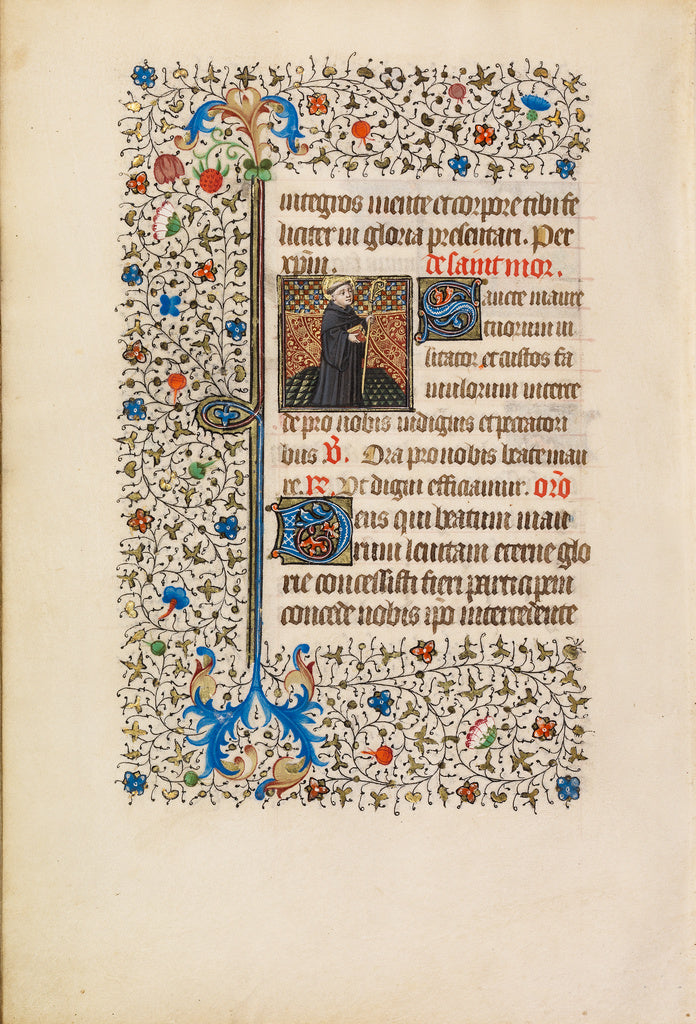 integros mente et corpore tibi fe
liciter in gloria presentari. Per
xpm. de saint mor.
Sancte maure
tuorum ui
sitator et custos fa
mulorum interce
de pro nobis indignis et peccatori
bus V. Ora pro nobis beate mau
re. R. Vt digni efficiamur. oro
Deus qui beatum mau
rum leuitam eterne glo
rie concessisti fieri participem
concede nobis ipo intercedente